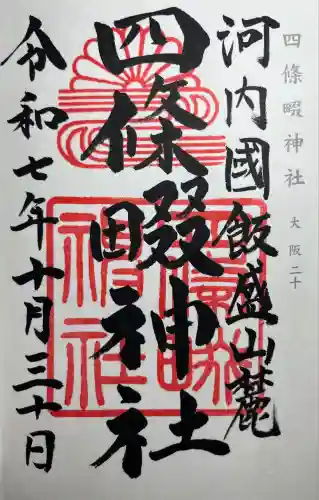 四條畷神社 大阪二十
河内國飯盛山麓
四條畷神社
令和七年十月三十日
神社